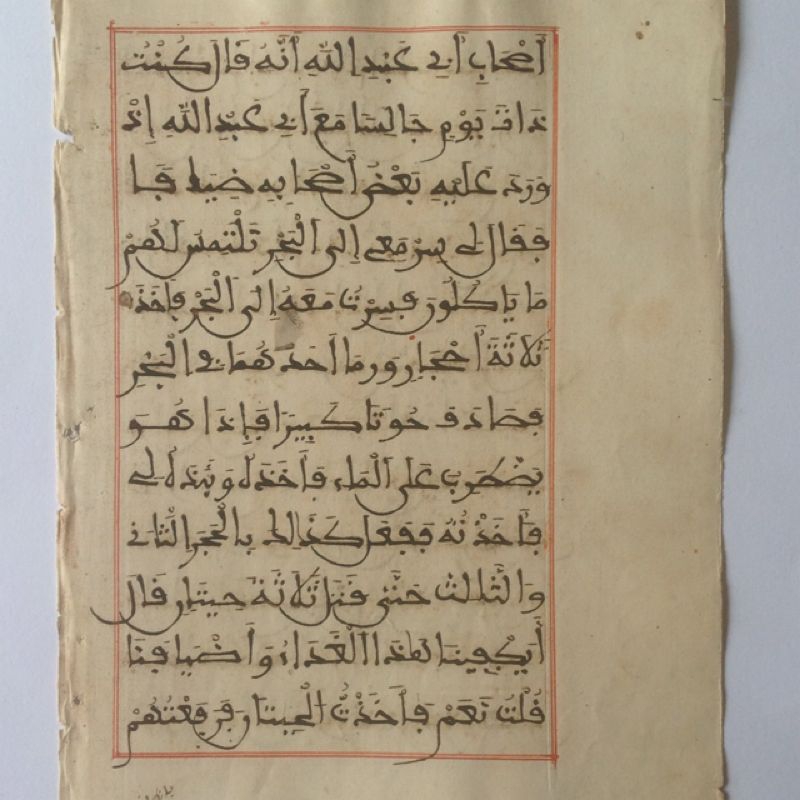 أَصْحَابِ أَبِي عَبْدِ اللَّهِ أَنَّهُ قَالَ كُنْتُ
ذَاتَ يَوْمٍ جَالِسًا مَعَ أَبِي عَبْدِ اللَّهِ إِذْ
وَرَدَ عَلَيْهِ بَعْضُ أَصْحَابِهِ ضِيَافًا
فَقَالَ لِي سِرْ مَعِي إِلَى الْبَحْرِ نَلْتَمِسْ لَهُمْ
مَا يَاكُلُونَ فَسِرْتُ مَعَهُ إِلَى الْبَحْرِ فَأَخَذَ
ثَلَاثَةَ أَحْجَارٍ وَرَمَا أَحَدَهُمَا فِي الْبَحْرِ
فَصَادَفَ حُوتًا كَبِيرًا فَإِذَا هُوَ
يَضْطَرِبُ عَلَى الْمَاءِ فَأَخَذَهُ وَنَبَذَهُ لِي
فَأَخَذْتُهُ فَفَعَلَ كَذَالِكَ بِالْحَجَرِ الثَّانِي
وَالثَّالِثِ حَتَّى قَتَلَ ثَلَاثَةَ حِيتَانٍ قَالَ
أَيَكْفِينَا هَذَا الْغَدَاءُ وَأَضْيَافَنَا
قُلْتُ نَعَمْ فَأَخَذْتُ الْحِيتَانَ فَرَفَعْتُهُمْ